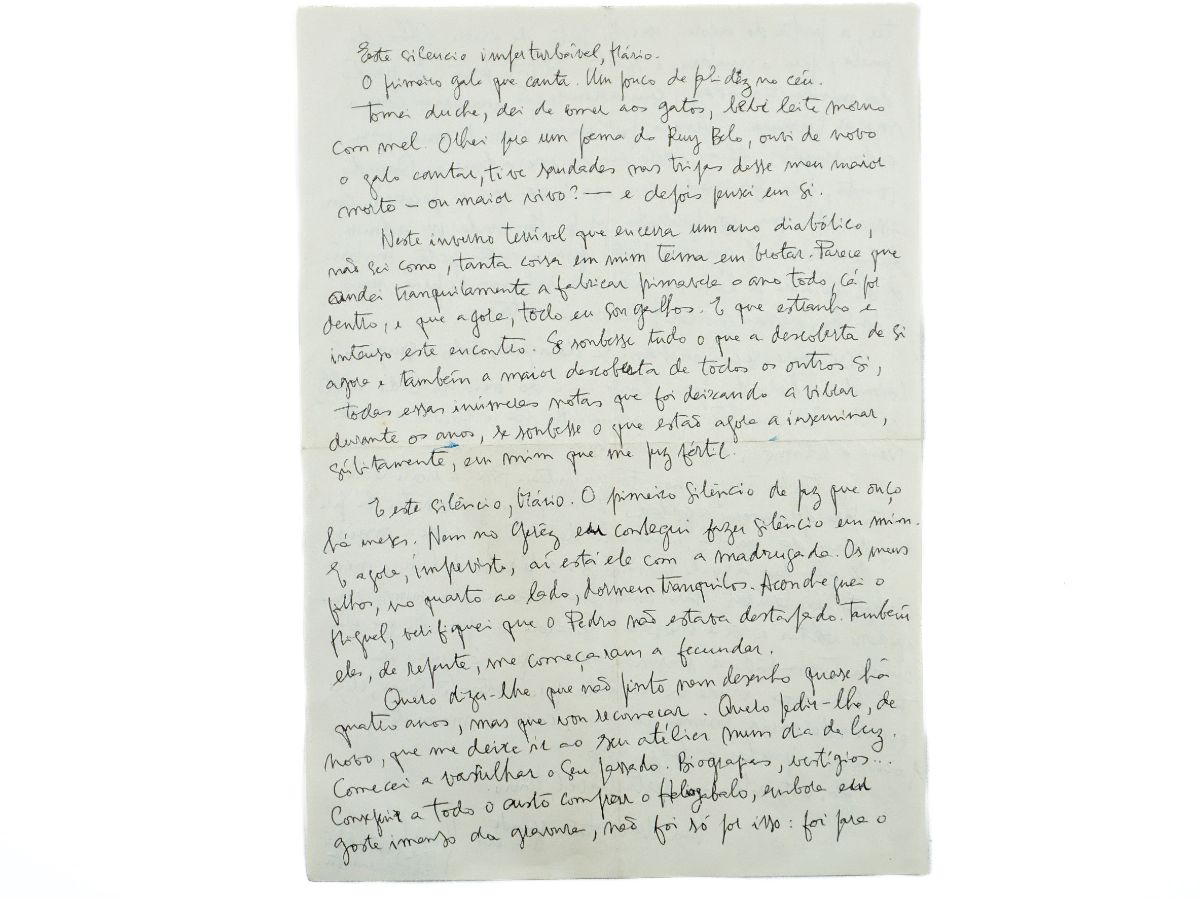 Este silencio imperturbável, Mário.
O primeiro galo que canta. Um pouco de palidez no céu.
Tomei duche, dei de comer aos gatos, bebi leite morno
com mel. Olhei pra um poema do Ruy Belo, ouvi de novo
o galo cantar, tive saudades nas tripas desse meu maior
morto — ou maior vivo? — e depois pensei em si.
Neste inverno terrível que encerra um ano diabólico,
não sei como, tanta coisa em mim teima em brotar. Parece que
andei tranquilamente a fabricar primavera o ano todo, cá por
dentro, e que agora, todo eu sou galhos. E que estranho e
intenso este encontro. Se soubesse tudo o que a descoberta de si
agora e também a maior descoberta de todos os outros si,
todas essas inúmeras notas que foi deixando a vibrar
durante os anos, se soubesse o que estão agora a inseminar,
súbitamente, em mim que me faz fértil.
E este silêncio, Mário. O primeiro silêncio de paz que ouço
há meses. Nem no Gerêz eu consegui fazer silêncio em mim.
E agora, imprevisto, aí está ele com a madrugada. Os meus
filhos, no quarto ao lado, dormem tranquilos. Aconcheguei o
Miguel, verifiquei que o Pedro não estava destapado. Também
eles, de repente, me começaram a fecundar.
Quero dizer-lhe que não pinto nem desenho quase há
quatro anos, mas que vou recomeçar. Quero pedir-lhe, de
novo, que me deixe ir ao seu atélier num dia de luz.
Comecei a vasculhar o seu passado. Biografias, vestígios...
Consegui a todo o custo comprar o Heliogabalo, embora eu
goste imenso da gravura, não foi só por isso: foi pra o